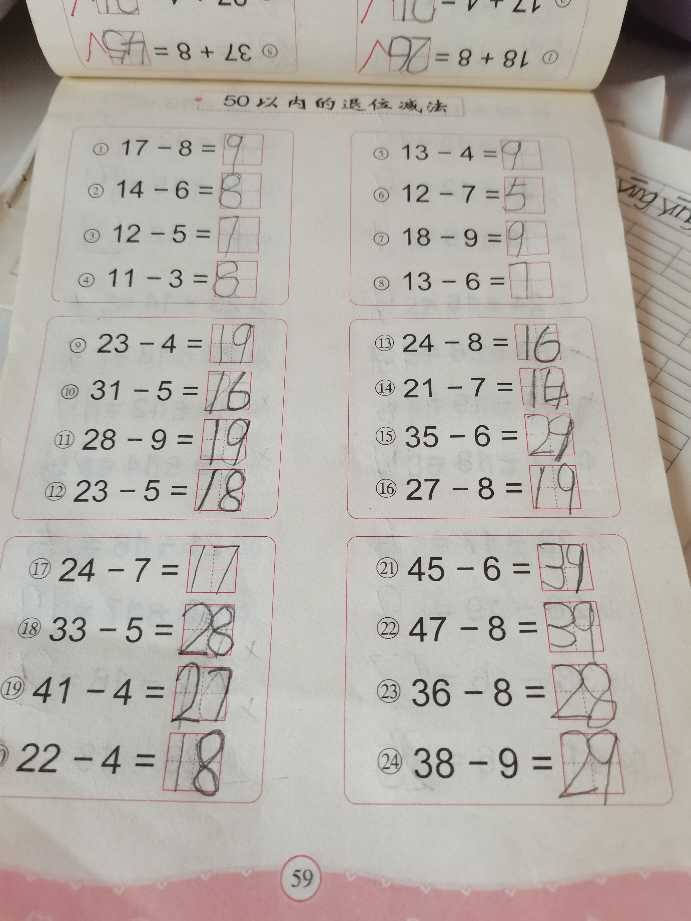 ⑤ 37 + 8 = 45
① 18 + 8 = 26
50以内的退位减法
① 17 − 8 = 9
⑤ 13 − 4 = 9
② 14 − 6 = 8
⑥ 12 − 7 = 5
③ 12 − 5 = 7
⑦ 18 − 9 = 9
④ 11 − 3 = 8
⑧ 13 − 6 = 7
⑨ 23 − 4 = 19
⑬ 24 − 8 = 16
⑩ 31 − 5 = 16
⑭ 21 − 7 = 14
⑪ 28 − 9 = 19
⑮ 35 − 6 = 29
⑫ 23 − 5 = 18
⑯ 27 − 8 = 19
⑰ 24 − 7 = 17
㉑ 45 − 6 = 39
⑱ 33 − 5 = 28
㉒ 47 − 8 = 39
⑲ 41 − 4 = 27
㉓ 36 − 8 = 28
22 − 4 = 18
㉔ 38 − 9 = 29
59